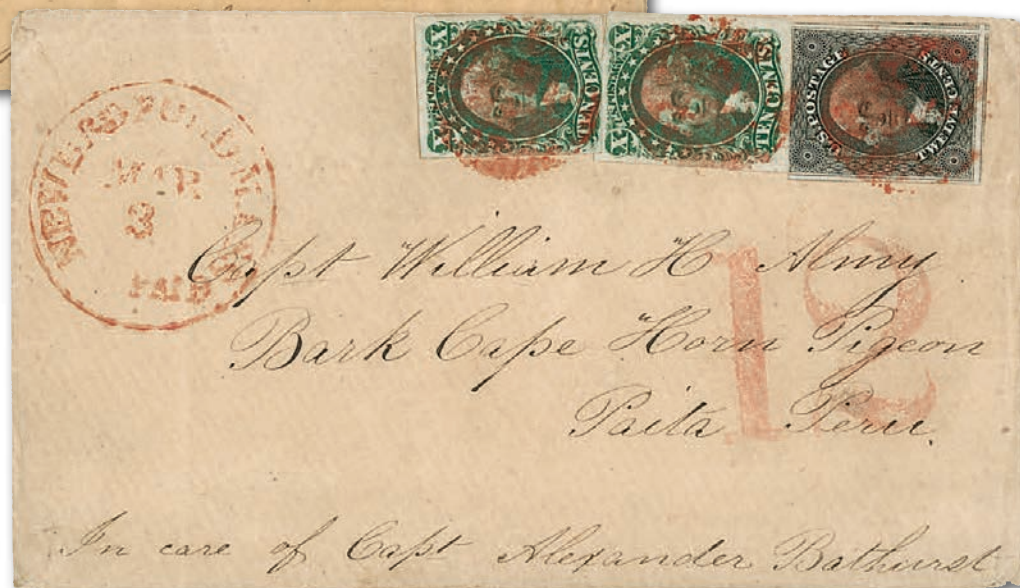 U.S. POSTAGE TEN CENTS X X
U.S. POSTAGE TEN CENTS X X
U.S. POSTAGE TWELVE CENTS
NEW BEDFORD MASS
MAR
3
PAID
Capt William H Almy
Bark Cape Horn Pigeon
Paita Peru.
12
In care of Capt Alexander Bathurst